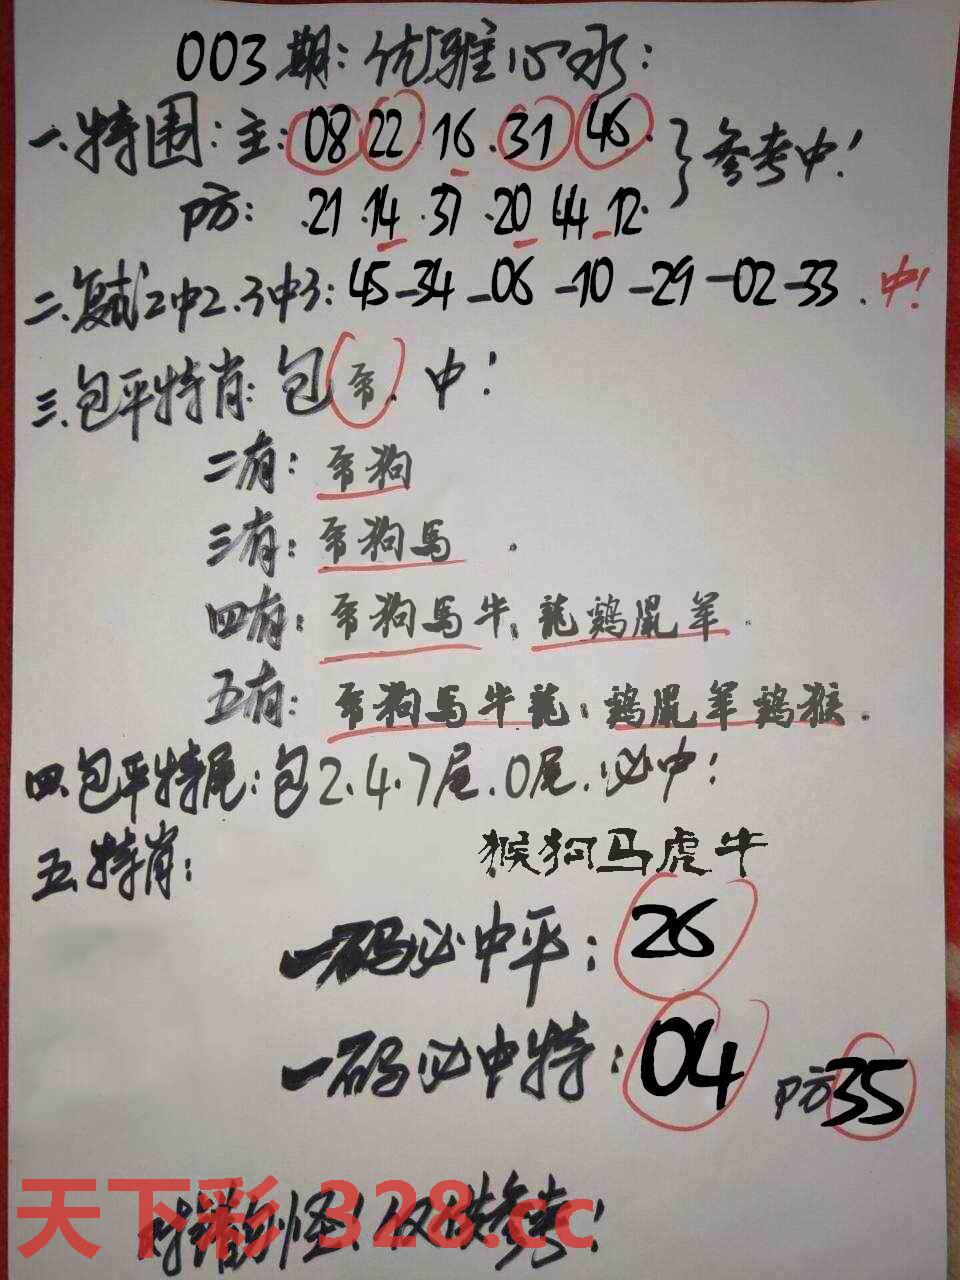 003期:优雅心水:
一.特围:主:08 22 16.31 46.}参考中!
防: .21 .14 .37 .20 44 12.
二.复式2中2.3中3:45-34-06-10-29-02-33.中!
三.包平特肖:包 . 中!
二有: 狗
三有: 狗馬 .
四有: 狗馬牛.龍鷄鼠羊.
五有: 狗馬牛龍.鷄鼠羊鷄猴.
四.包平特尾:包2.4.7尾.0尾.必中!
五.特肖: 猴狗马虎牛
一码必中平:26
一码必中特:04 防35
错勿怪!仅供参考!
天下彩 328.cc